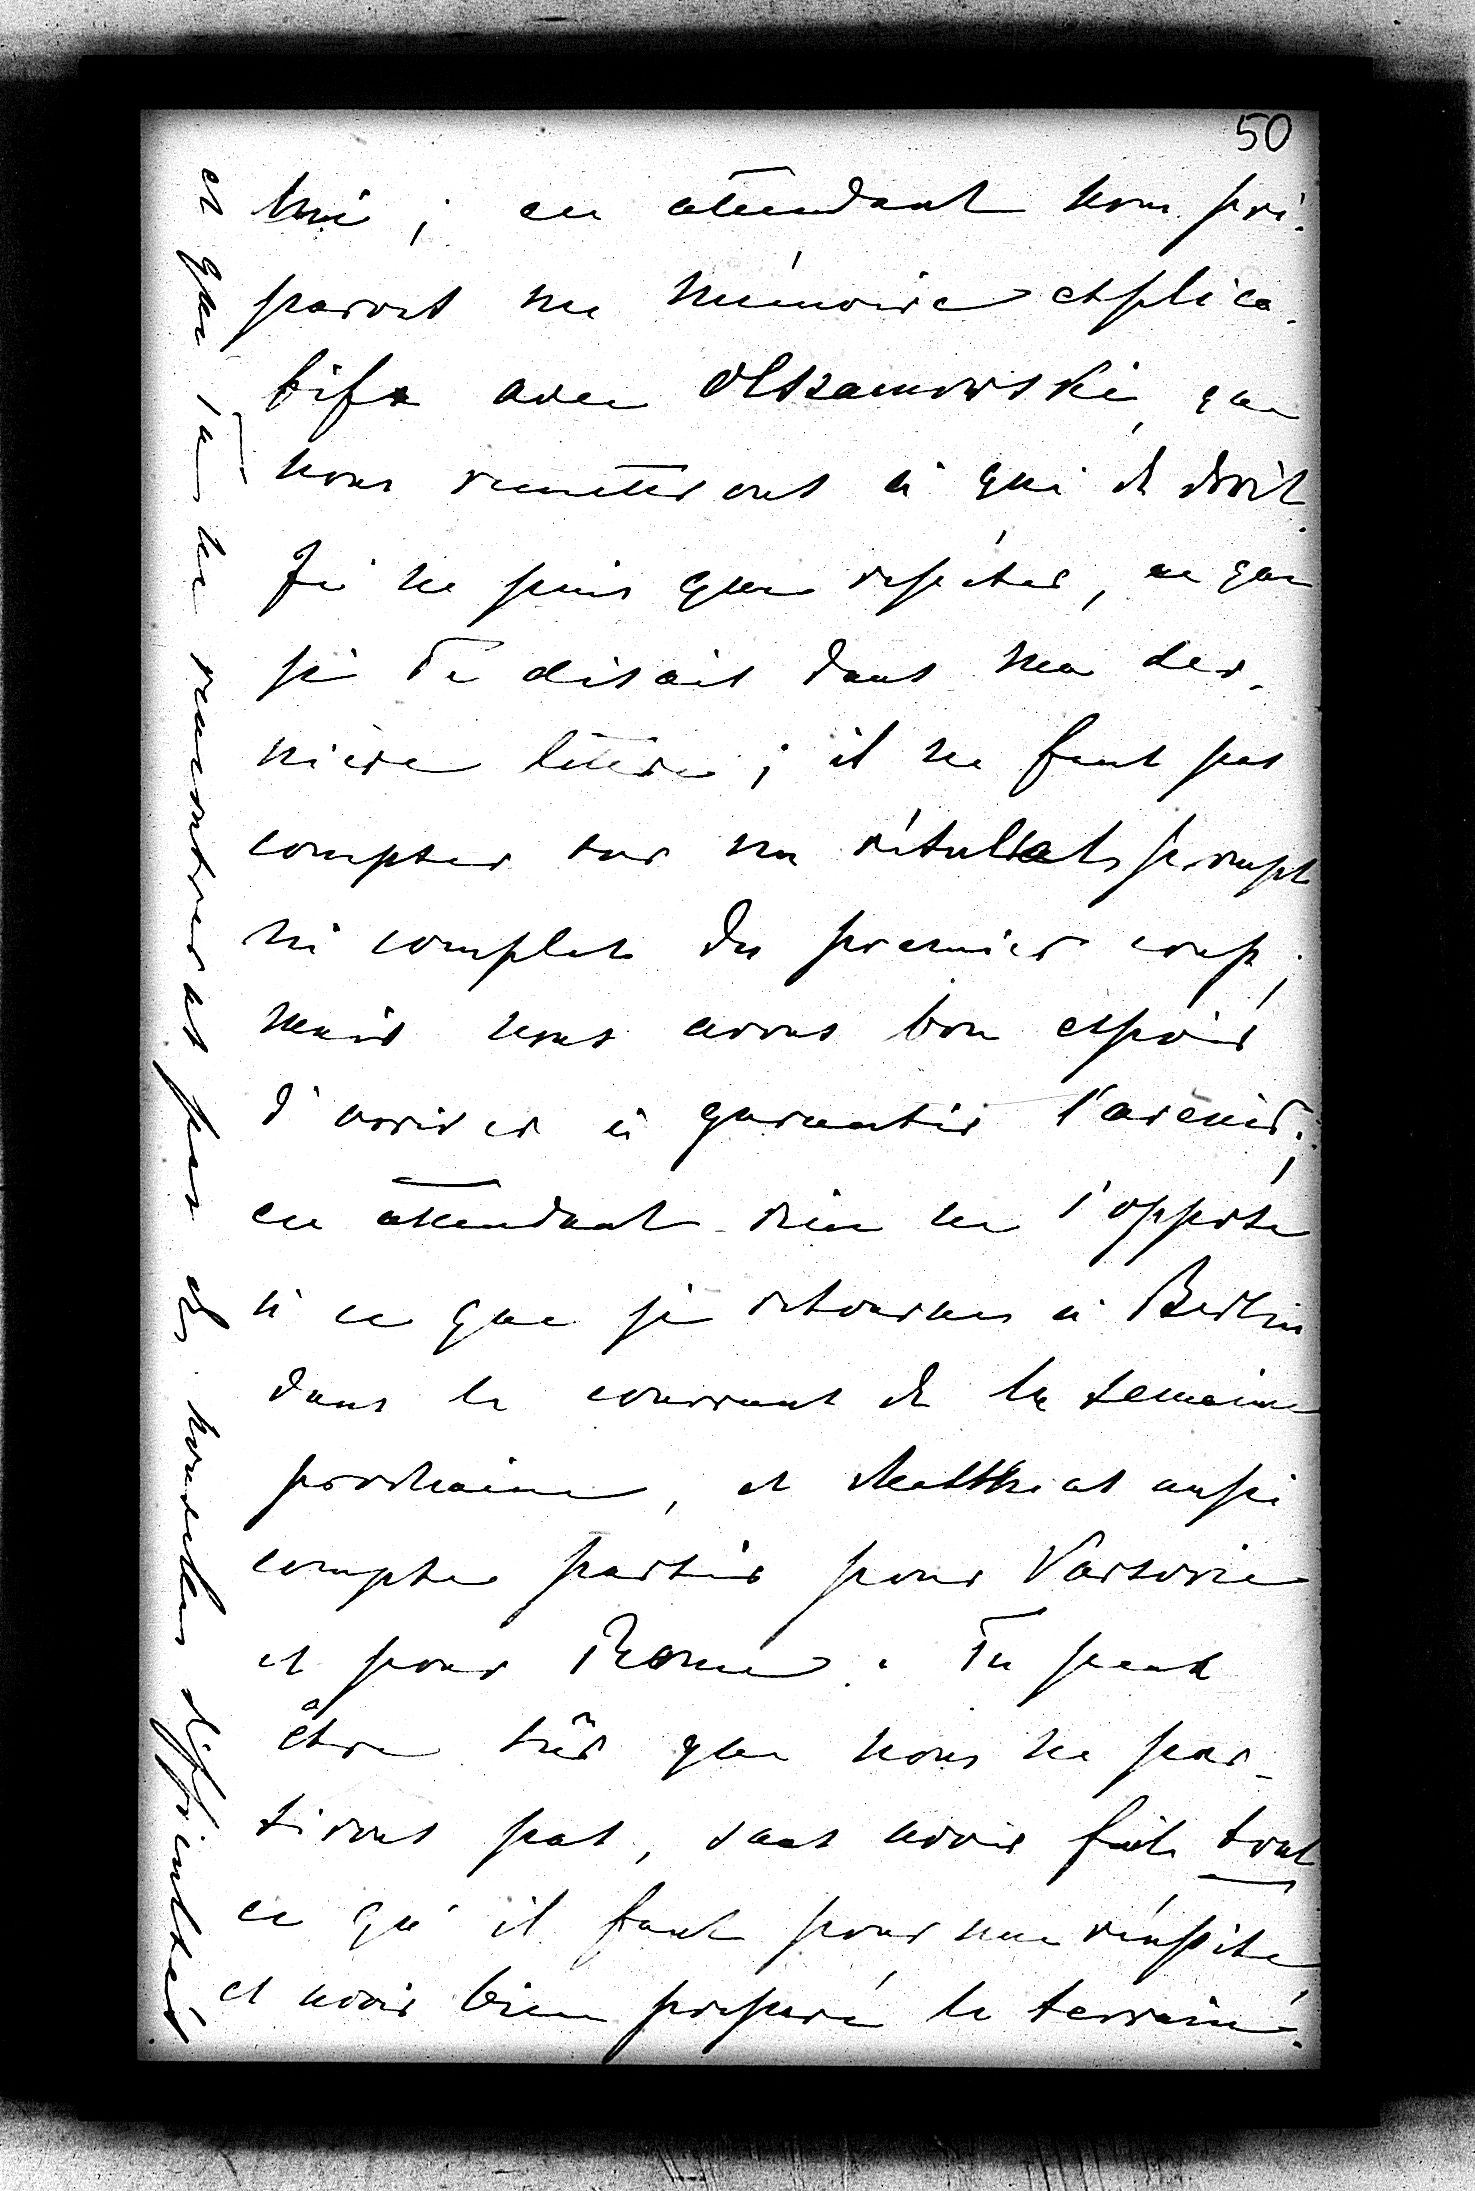 50
lui ; en attendant nous pré-
parons un mémoire explica-
tif avec Olszamowski, que
nous remetterons à qui de droit.
Je ne puis que repéter, ce que
je Te disais dans ma der-
nière lettre ; il ne faut pas
compter sur un résultats prompt
ni complet du premier coup ;
mais nous avons bon espoir
d'arriver à garantir l'avenir ;
en attendant rien ne s'oppose
à ce que je retournes à Berlin
dans le courrant de la semaine
prochaine, et Matthias aussi
compte partir pour Varsovie
et pour Rome. Tu peut
être sûr que nous ne par-
tirons pas, sans avoir fait tout
ce qu'il faut pour une réussite
et avoir bien preparé le terrain
et que l'on ne rencontrerat pas de nouvelles difficultés